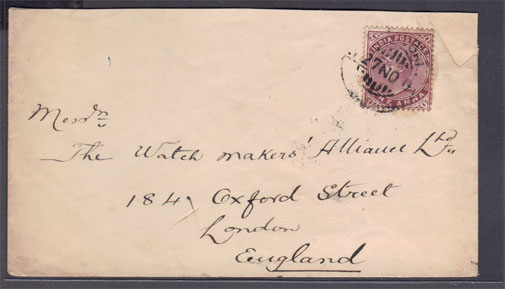 INDIA POSTAGE
7 NO
ONE ANNA
Messrs
The Watch makers' Alliance Ltd
184 Oxford Street
London
England